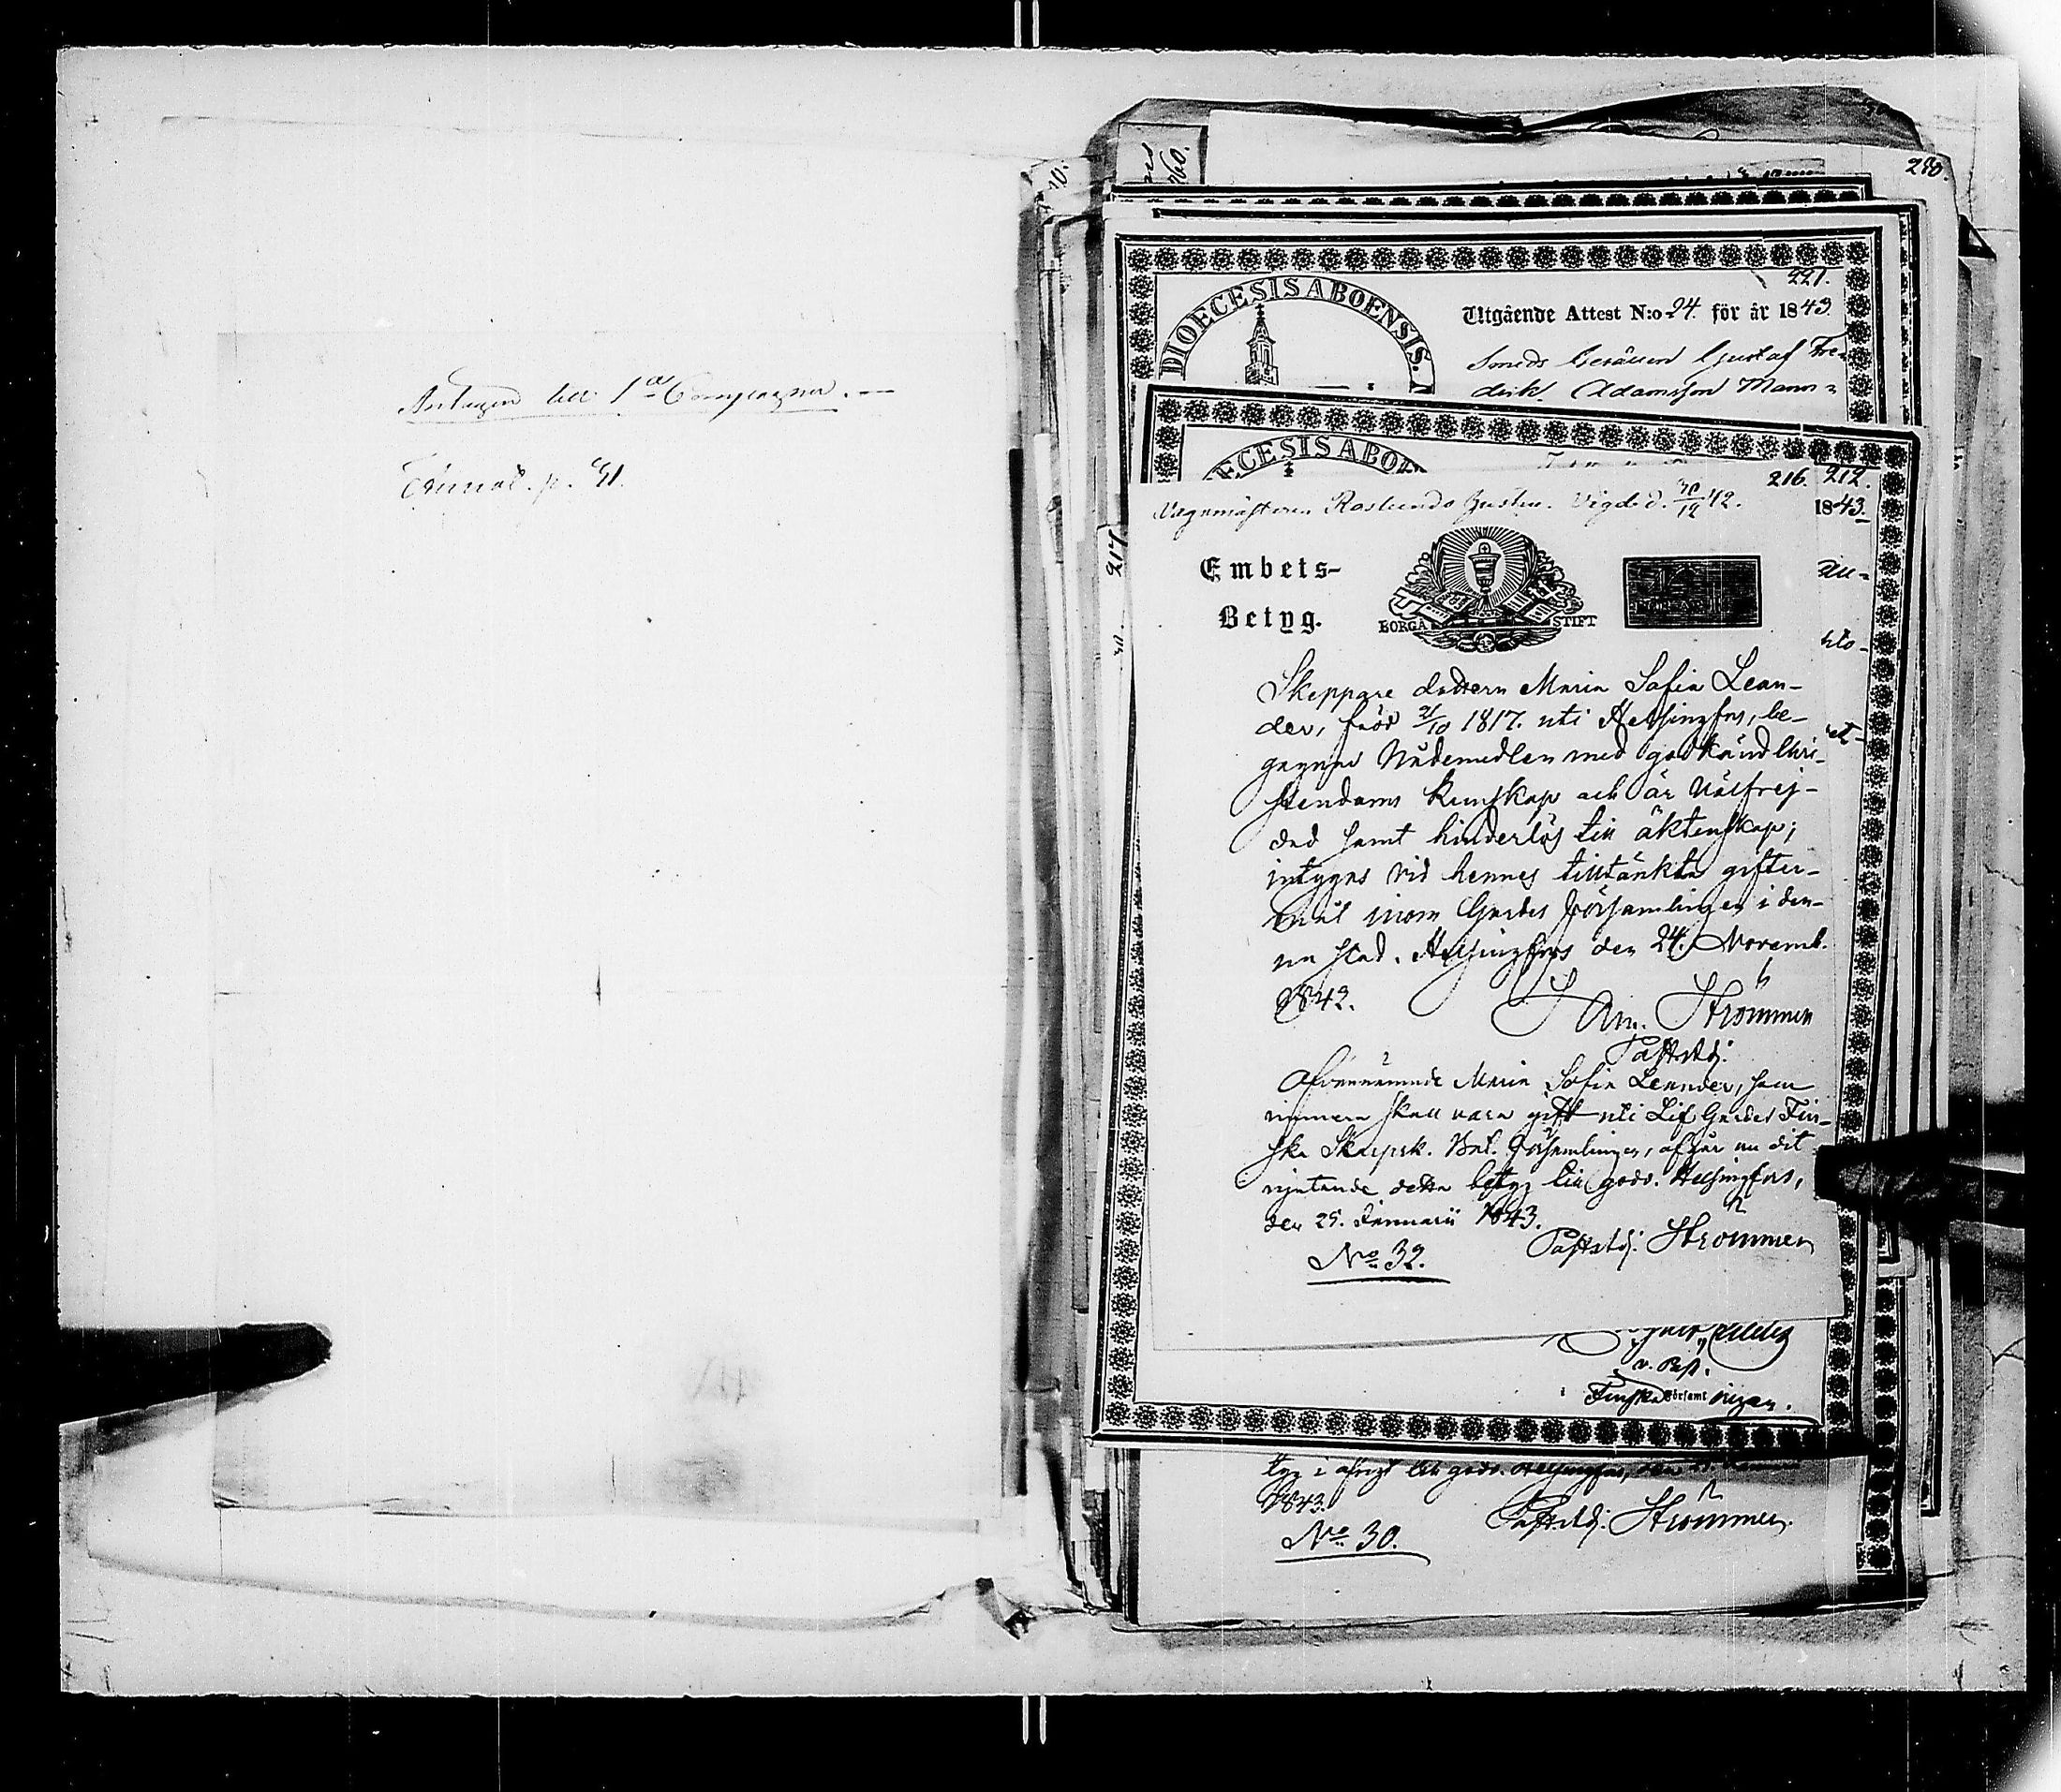 Antagen till 1a Compagnie.
p. 41.
280.
217
221.
DIOECESIS ABOENSIS.
Utgående Attest N:o 24. för år 1843
Smeds Gesällen Gustaf Fre-
drik Adamsson Mann-
216. 212.
Vagnmästaren Roslunds hustru. Vigd d. 30/12 42.
1843.
Embets-
Betyg.
BORGÅ STIFT
Skeppare dottern Maria Sofia Lean-
der, född 21/10 1817. uti Helsingfors, be-
gagnar Nådemedlen med godkänd Chri-
stendoms kunskap och är Välfrej-
dad samt hinderlös till äktenskap;
intygas vid hennes tilltänkta gifter-
mål inom Gardes församlingen i den-
na stad. Helsingfors den 24. Novemb.
1842.
Strömmer
Past. Adj.
Ofvannämnde Maria Sofia Leander, som
numera skall vara gift uti Lif Gardes Fin-
ska Skarpsk. Bat. Församlingen, afgår nu dit
njutande detta betyg till godo. Helsingfors,
den 25. Januarii 1843.
Past. Adj. Strömmer
No 32.
v. Past.
Finska Församlingen.
tyg i afrigt till godo. Helsingfors, den 25. Januarii
1843.
Past. Adj. Strömmer.
No 30.